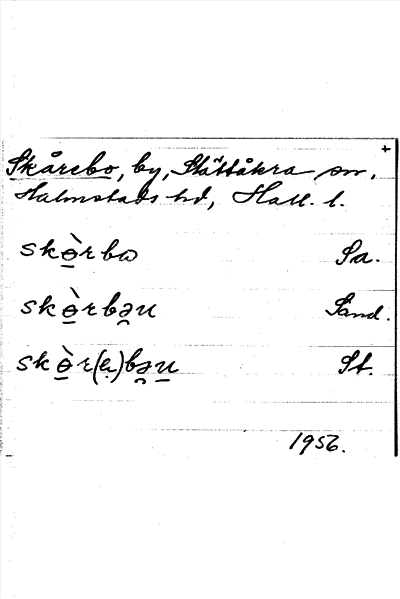 +
Skårebo, by, Slättåkra sn,
Halmstads hd, Hall. l.
skө̀rbɷ Sa.
skө̀rbəu Sand.
skө̀r(ə)bəu St.
1956.